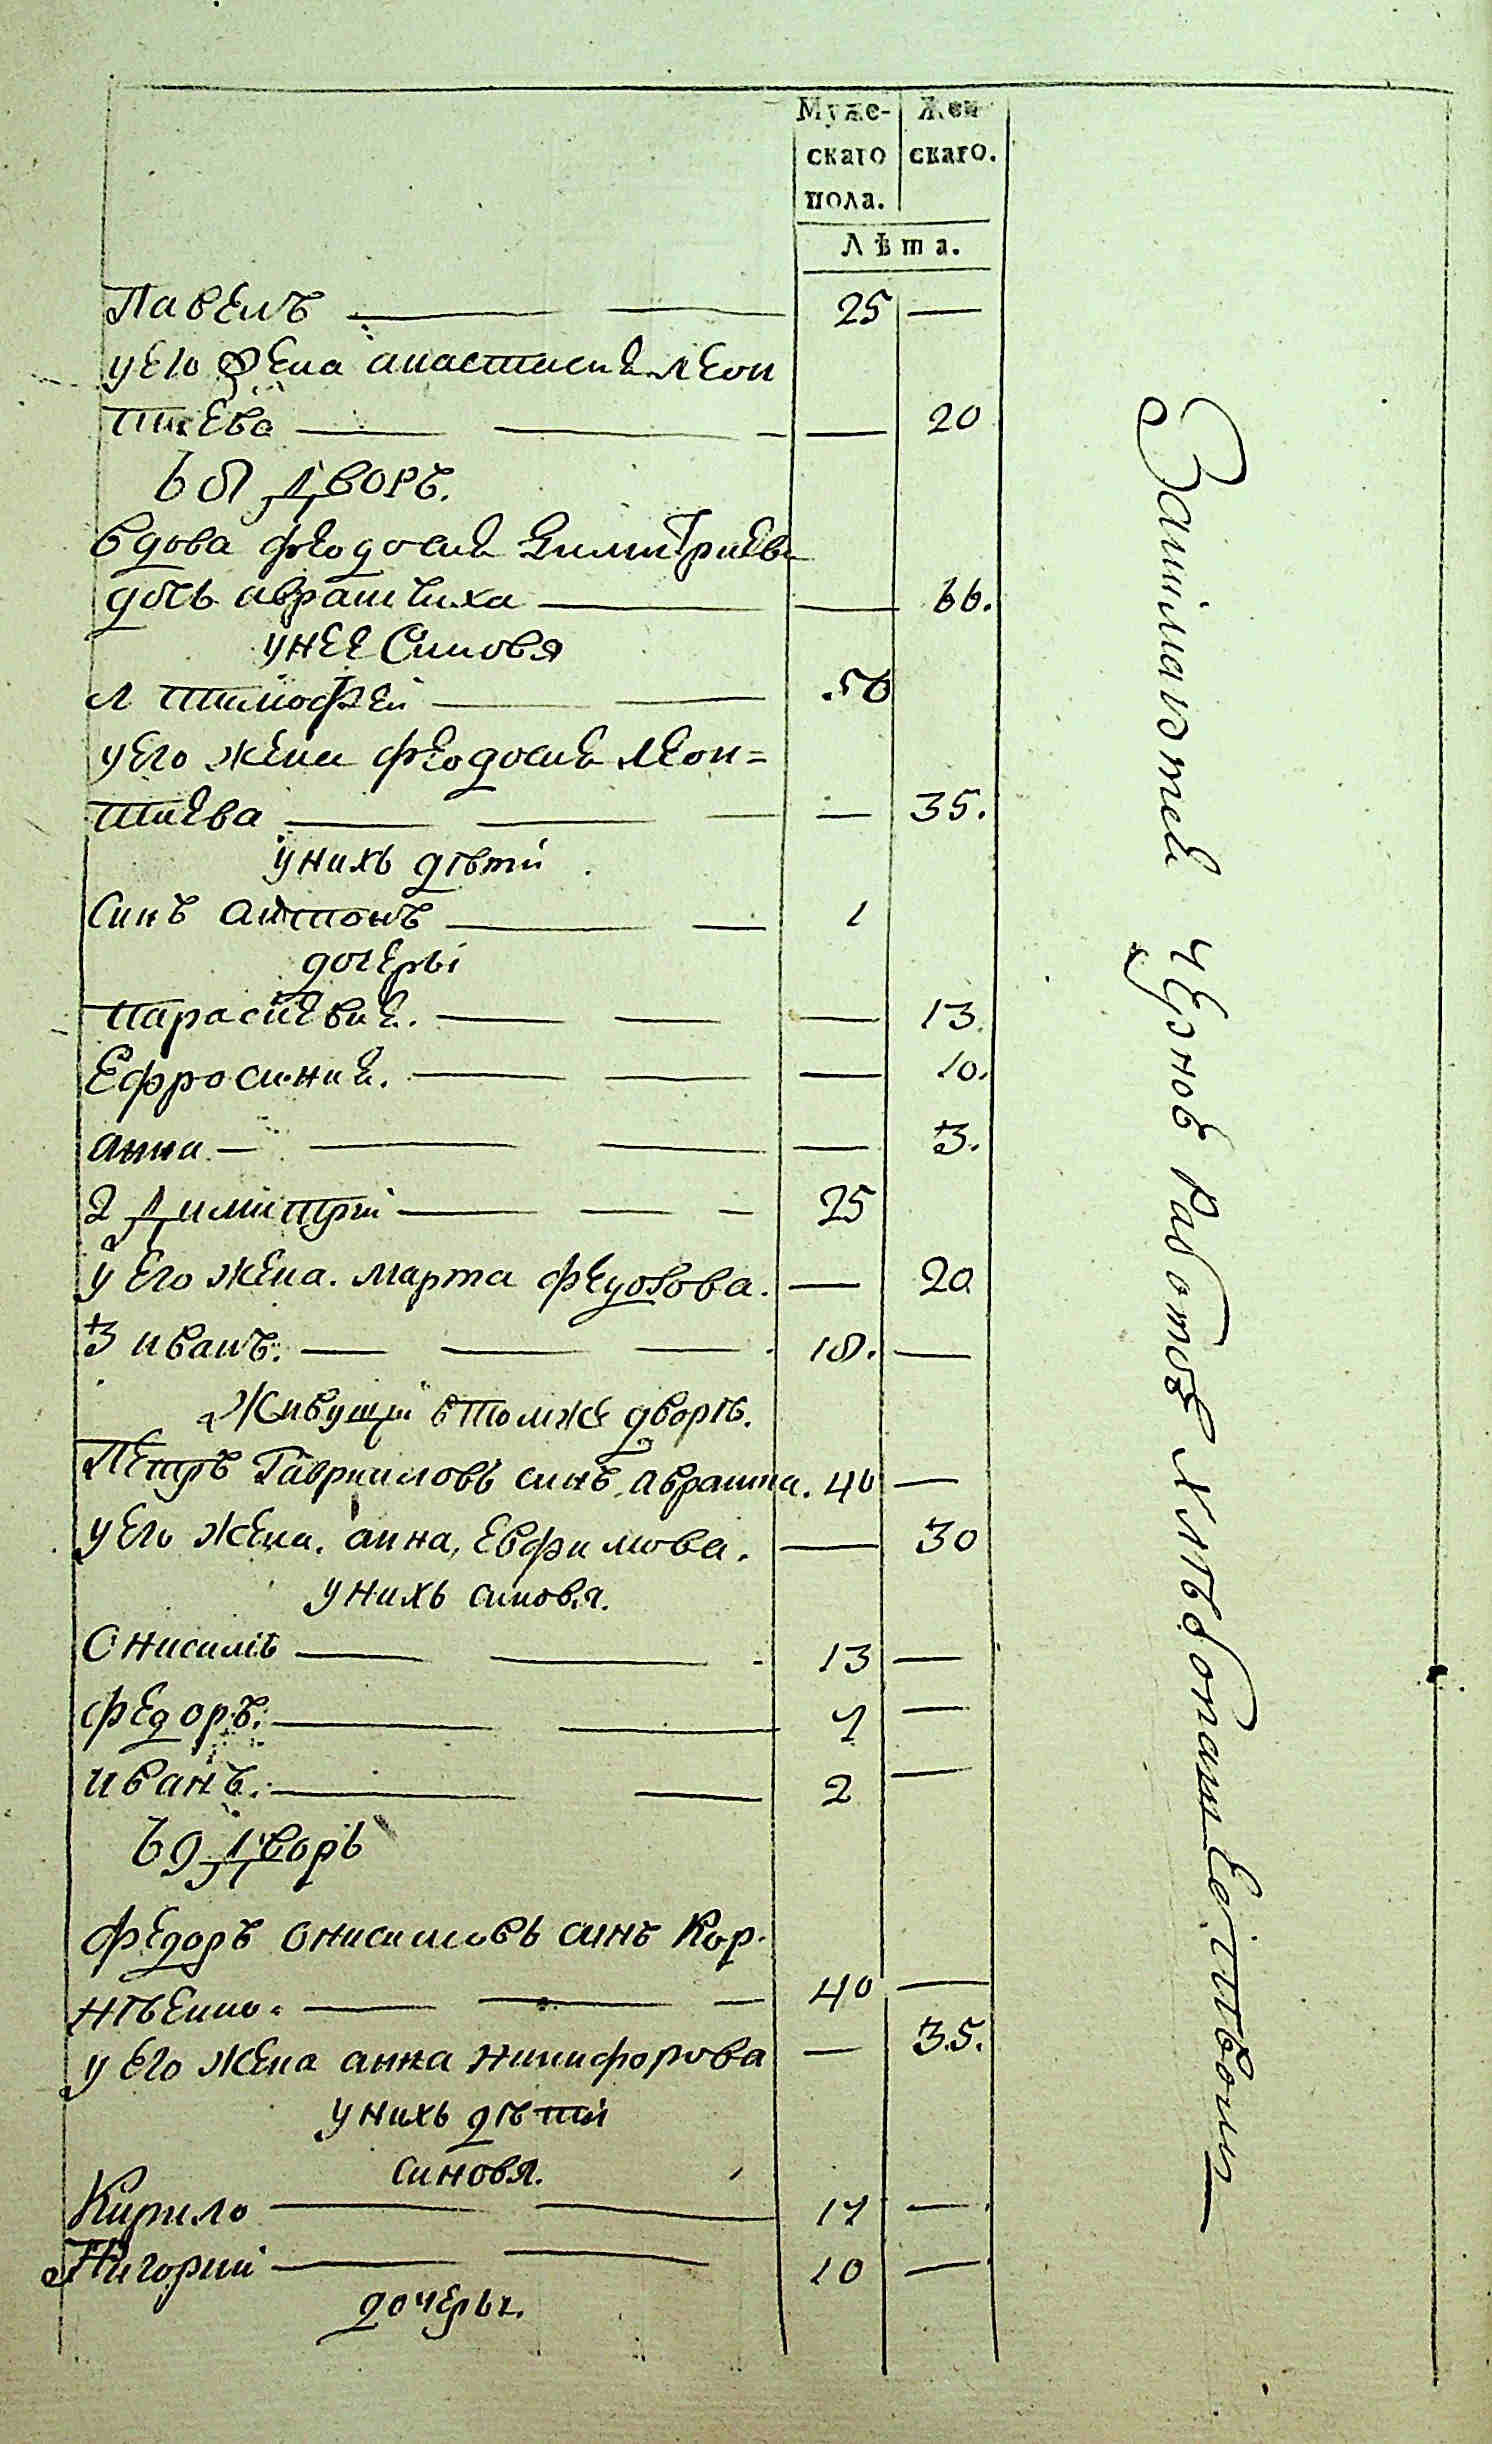 Муже-
скаго
пола.
Жен
скаго.
Лѣта.
Павелъ — — — 25 —
у его жена анастасиа леон
тиева — — — — 20
68 дворъ.
вдова феодосиа Димитриева
дочь аврамчиха — — 66.
у нее Синовя
1 тимофей — — 50
у его жена феодосиа леон=
тиева — — — — 35.
у нихъ дѣти
Синъ антонъ — — 1
дочеры
параскевиа. — — — 13.
Ефросиниа. — — — 10.
анна — — — — 3.
2 димитрий — — — 25
у его жена. марта федорова. — 20
3 иванъ. — — — 18. —
Живущи втомже дворѣ.
Петръ Гаврииловъ синъ аврамча. 40 —
у его жена. анна, Евфимова. — 30
у нихъ синовя.
Онисимъ — — 13 —
федоръ. — — 7 —
иванъ. — — 2 —
69 дворъ
федоръ онисимовъ синъ Кор-
нѣенко. — — — 40 —
у его жена анна никифорова — 35.
у нихъ дѣти
синовя.
Кирило — — 17 —
Григорий — — 10 —
дочеры.
Занимаютси чернова работою хлѣбопашествомъ